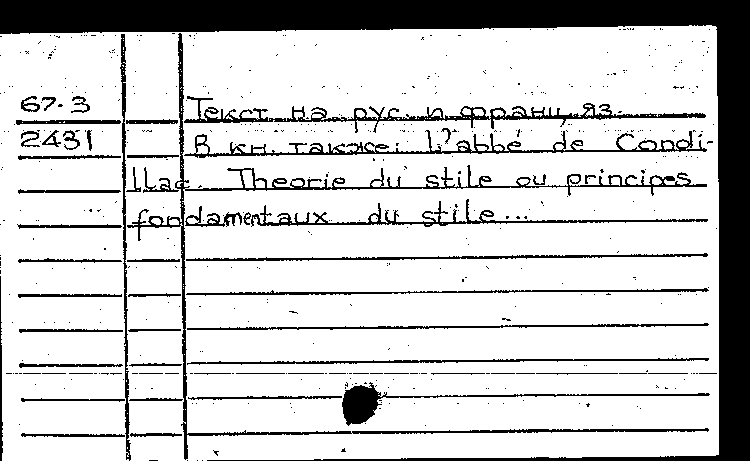 67-3 Текст на рус. и франц. яз.
2431 В кн. также: L'abbé de Condi-
llac. Theorie du stile ou principes
fondamentaux du stile...